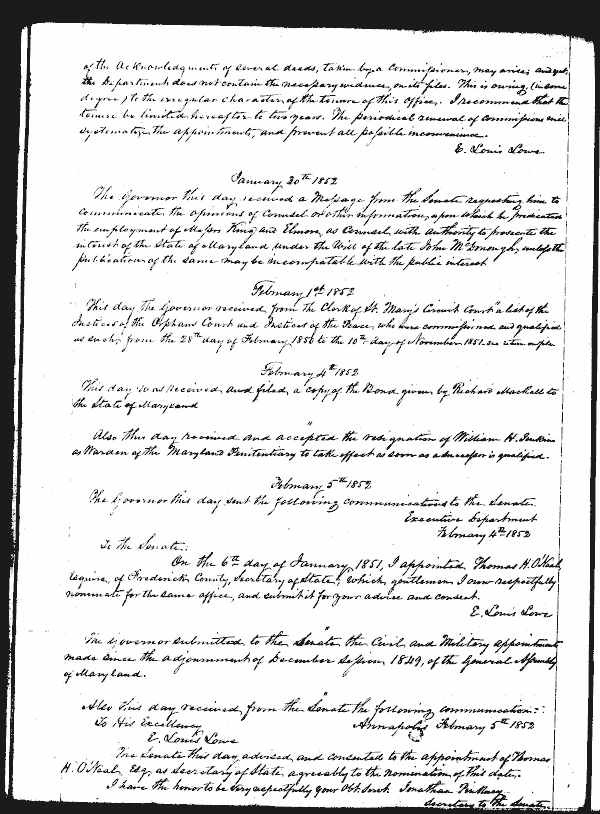 of the Acknowledgments of several deeds, taken by a Commissioner, may arise; and yet,
the Department does not contain the necessary evidence, on its files. This is owing, (in some
degree) to the irregular character of the tenure of this Office. I recommend that the
tenure be limited hereafter to two years. The periodical renewal of commissions will
systematize the appointments, and prevent all possible inconvenience.
E. Louis Lowe
January 30th 1852
The Governor this day received a Message from the Senate requesting him to
communicate the opinions of Counsel or other information, upon which he predicated
the employment of Messrs King and Elmore, as Counsel, with authority to prosecute the
interest of the State of Maryland under the Will of the late John McDonough, unless the
publication of the same may be incompatable with the public interest
February 1st 1852
This day the Governor received, from the Clerk of St. Mary's Circuit Court "a list of the
Justices of the Orphans Court and Justices of the Peace, who were commissioned and qualified
as such, from the 28th day of February 1850 to the 10th day of November 1851.
February 4th 1852
This day was received and filed, a copy of the Bond given by Richard Mackall to
the State of Maryland
"
Also this day received and accepted the resignation of William H. Jenkins
as Warden of the Maryland Penitentiary to take effect as soon as a successor is qualified.
February 5th 1852
The Governor this day sent the following communications to the Senate
Executive Department
February 4th 1852
To the Senate:
On the 6th day of January, 1851, I appointed Thomas H. O'Neal,
Esquire, of Frederick County, Secretary of State; which, gentlemen, I now respectfully
nominate for the same office, and submit it for your advice and consent.
E. Louis Lowe
"
The Governor submitted to the Senate the Civil and Military appointments
made since the adjournment of December session 1849, of the General Assembly
of Maryland.
"
Also this day received from the Senate the following communication:
To His Excellency Annapolis February 5th 1852
E. Louis Lowe
The Senate this day, advised, and consented to the appointment of Thomas
H. O'Neal, Esq. as Secretary of State, agreeably to the nomination of this date.
I have the honor to be very respectfully your Obt. Servt. Jonathan Pinkney
Secretary to the Senate